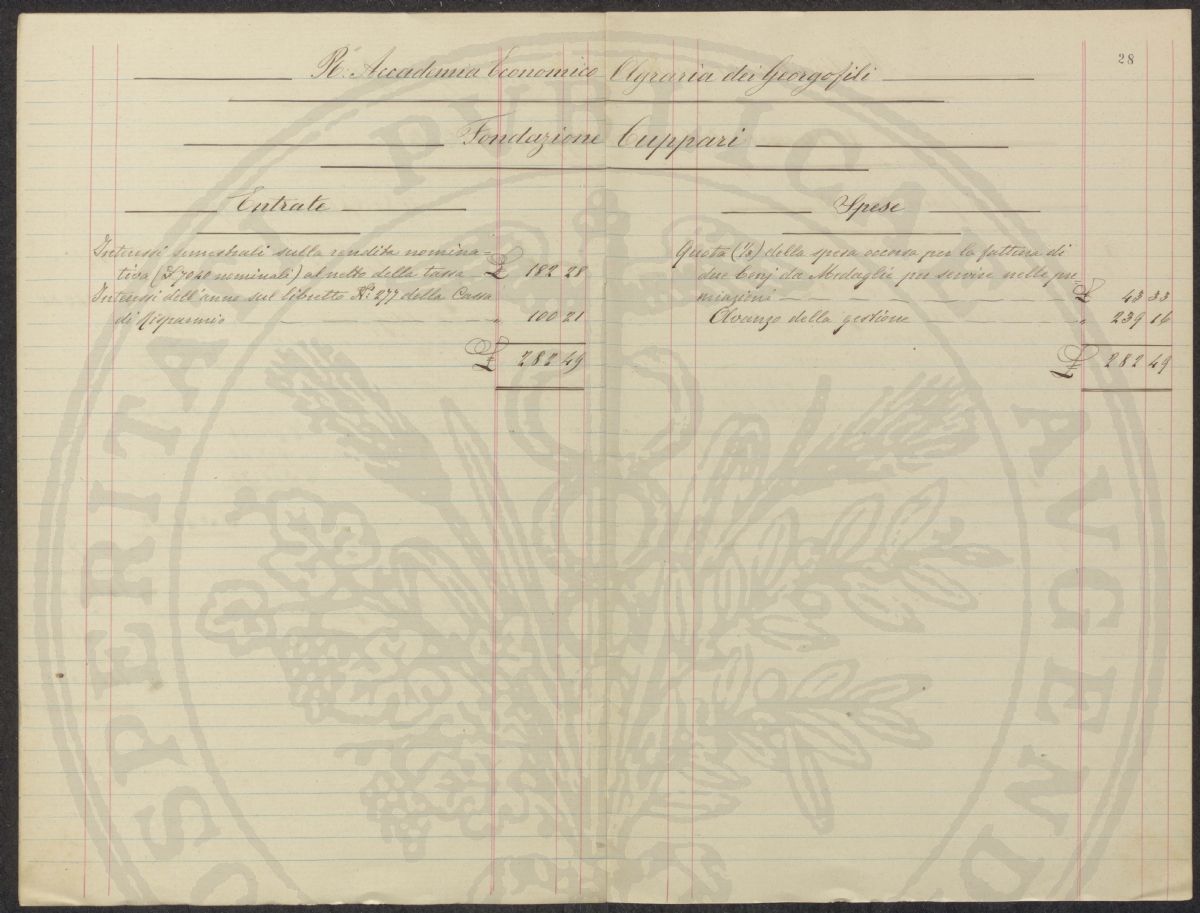 28
R. Accademia Economico Agraria dei Georgofili
Fondazione Cuppari
Entrate
Interessi semestrali sulla rendita nomina-
tiva (£ 7040 nominali) al netto della tassa £ 182 28
Interessi dell'anno sul libretto N. 277 della Cassa
di Risparmio " 100 21
£ 282 49
Spese
Quota (1/3) della spesa occorsa per la fattura di
due Conj da Medaglie per servire nelle pre
miazioni £ 43 33
Avanzo della gestione " 239 16
£ 282 49
PROSPERITATI PUBLICAE AUGENDAE